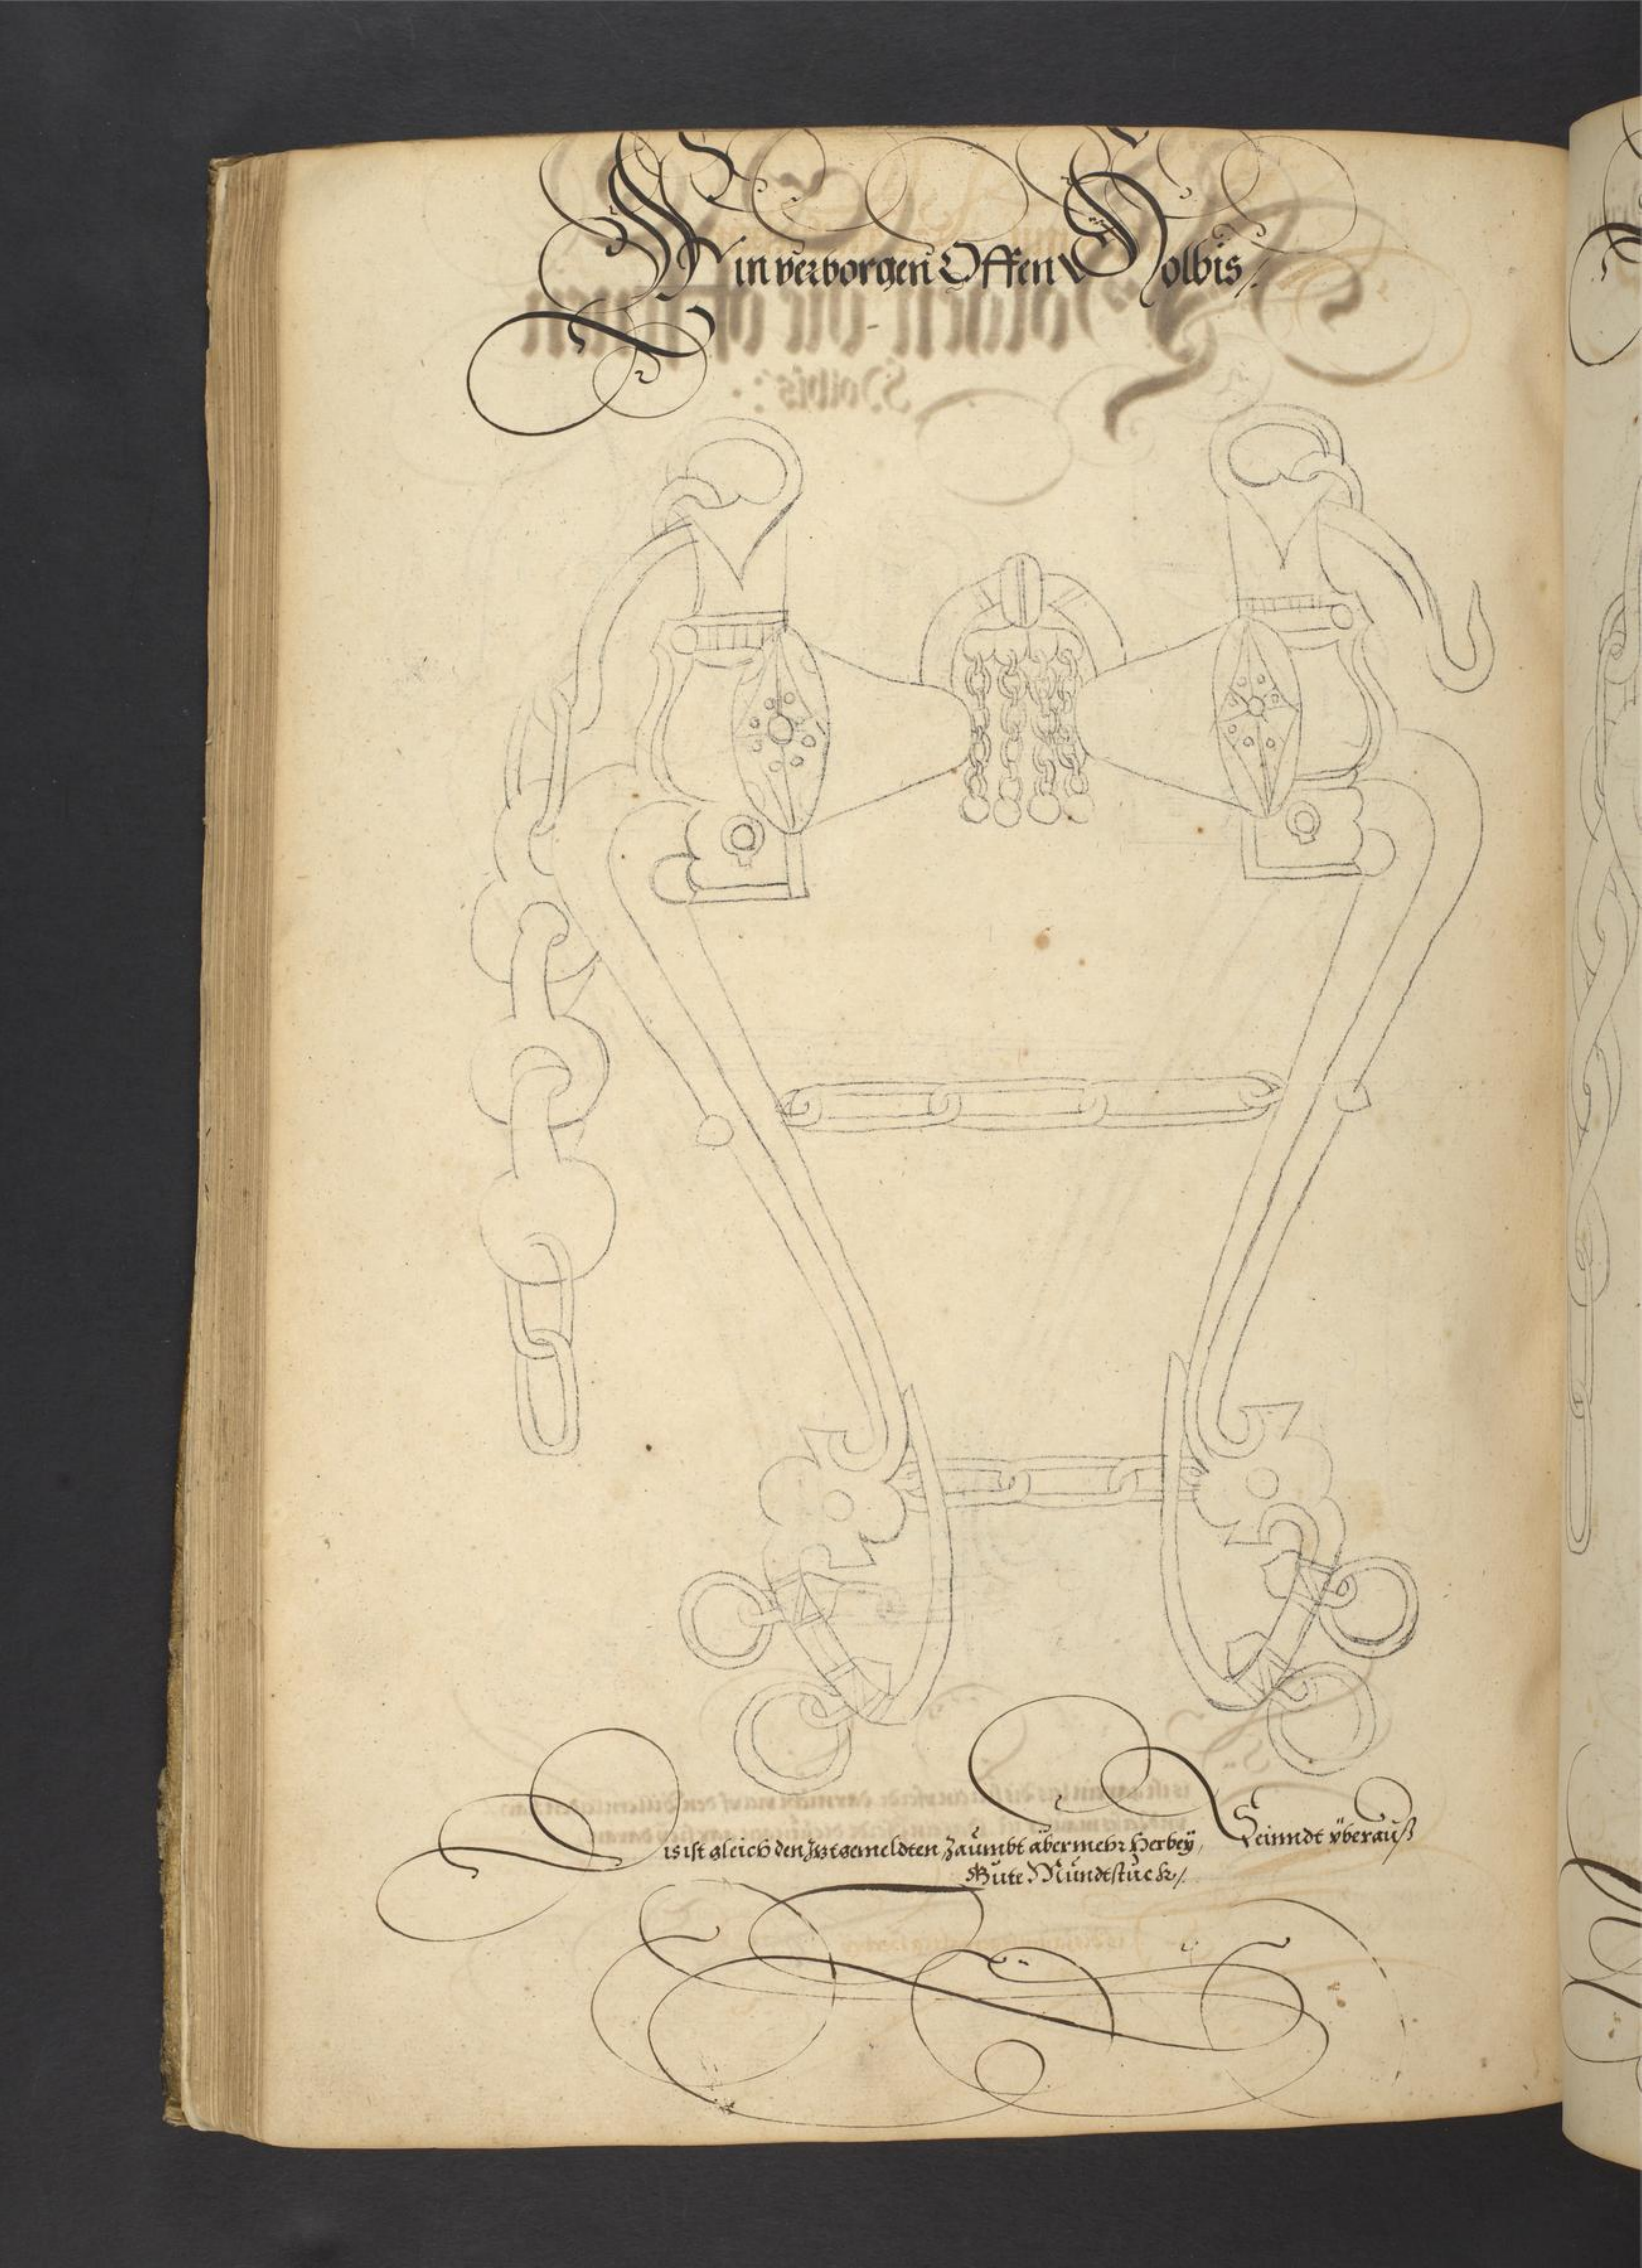 Ein verborgen Offen Holbis /.
Dis ist gleich den Jtzt gemeldten Zaümbt aber mehr Herbeÿ, Seinndt vberauß
Gute Mündtstück /.